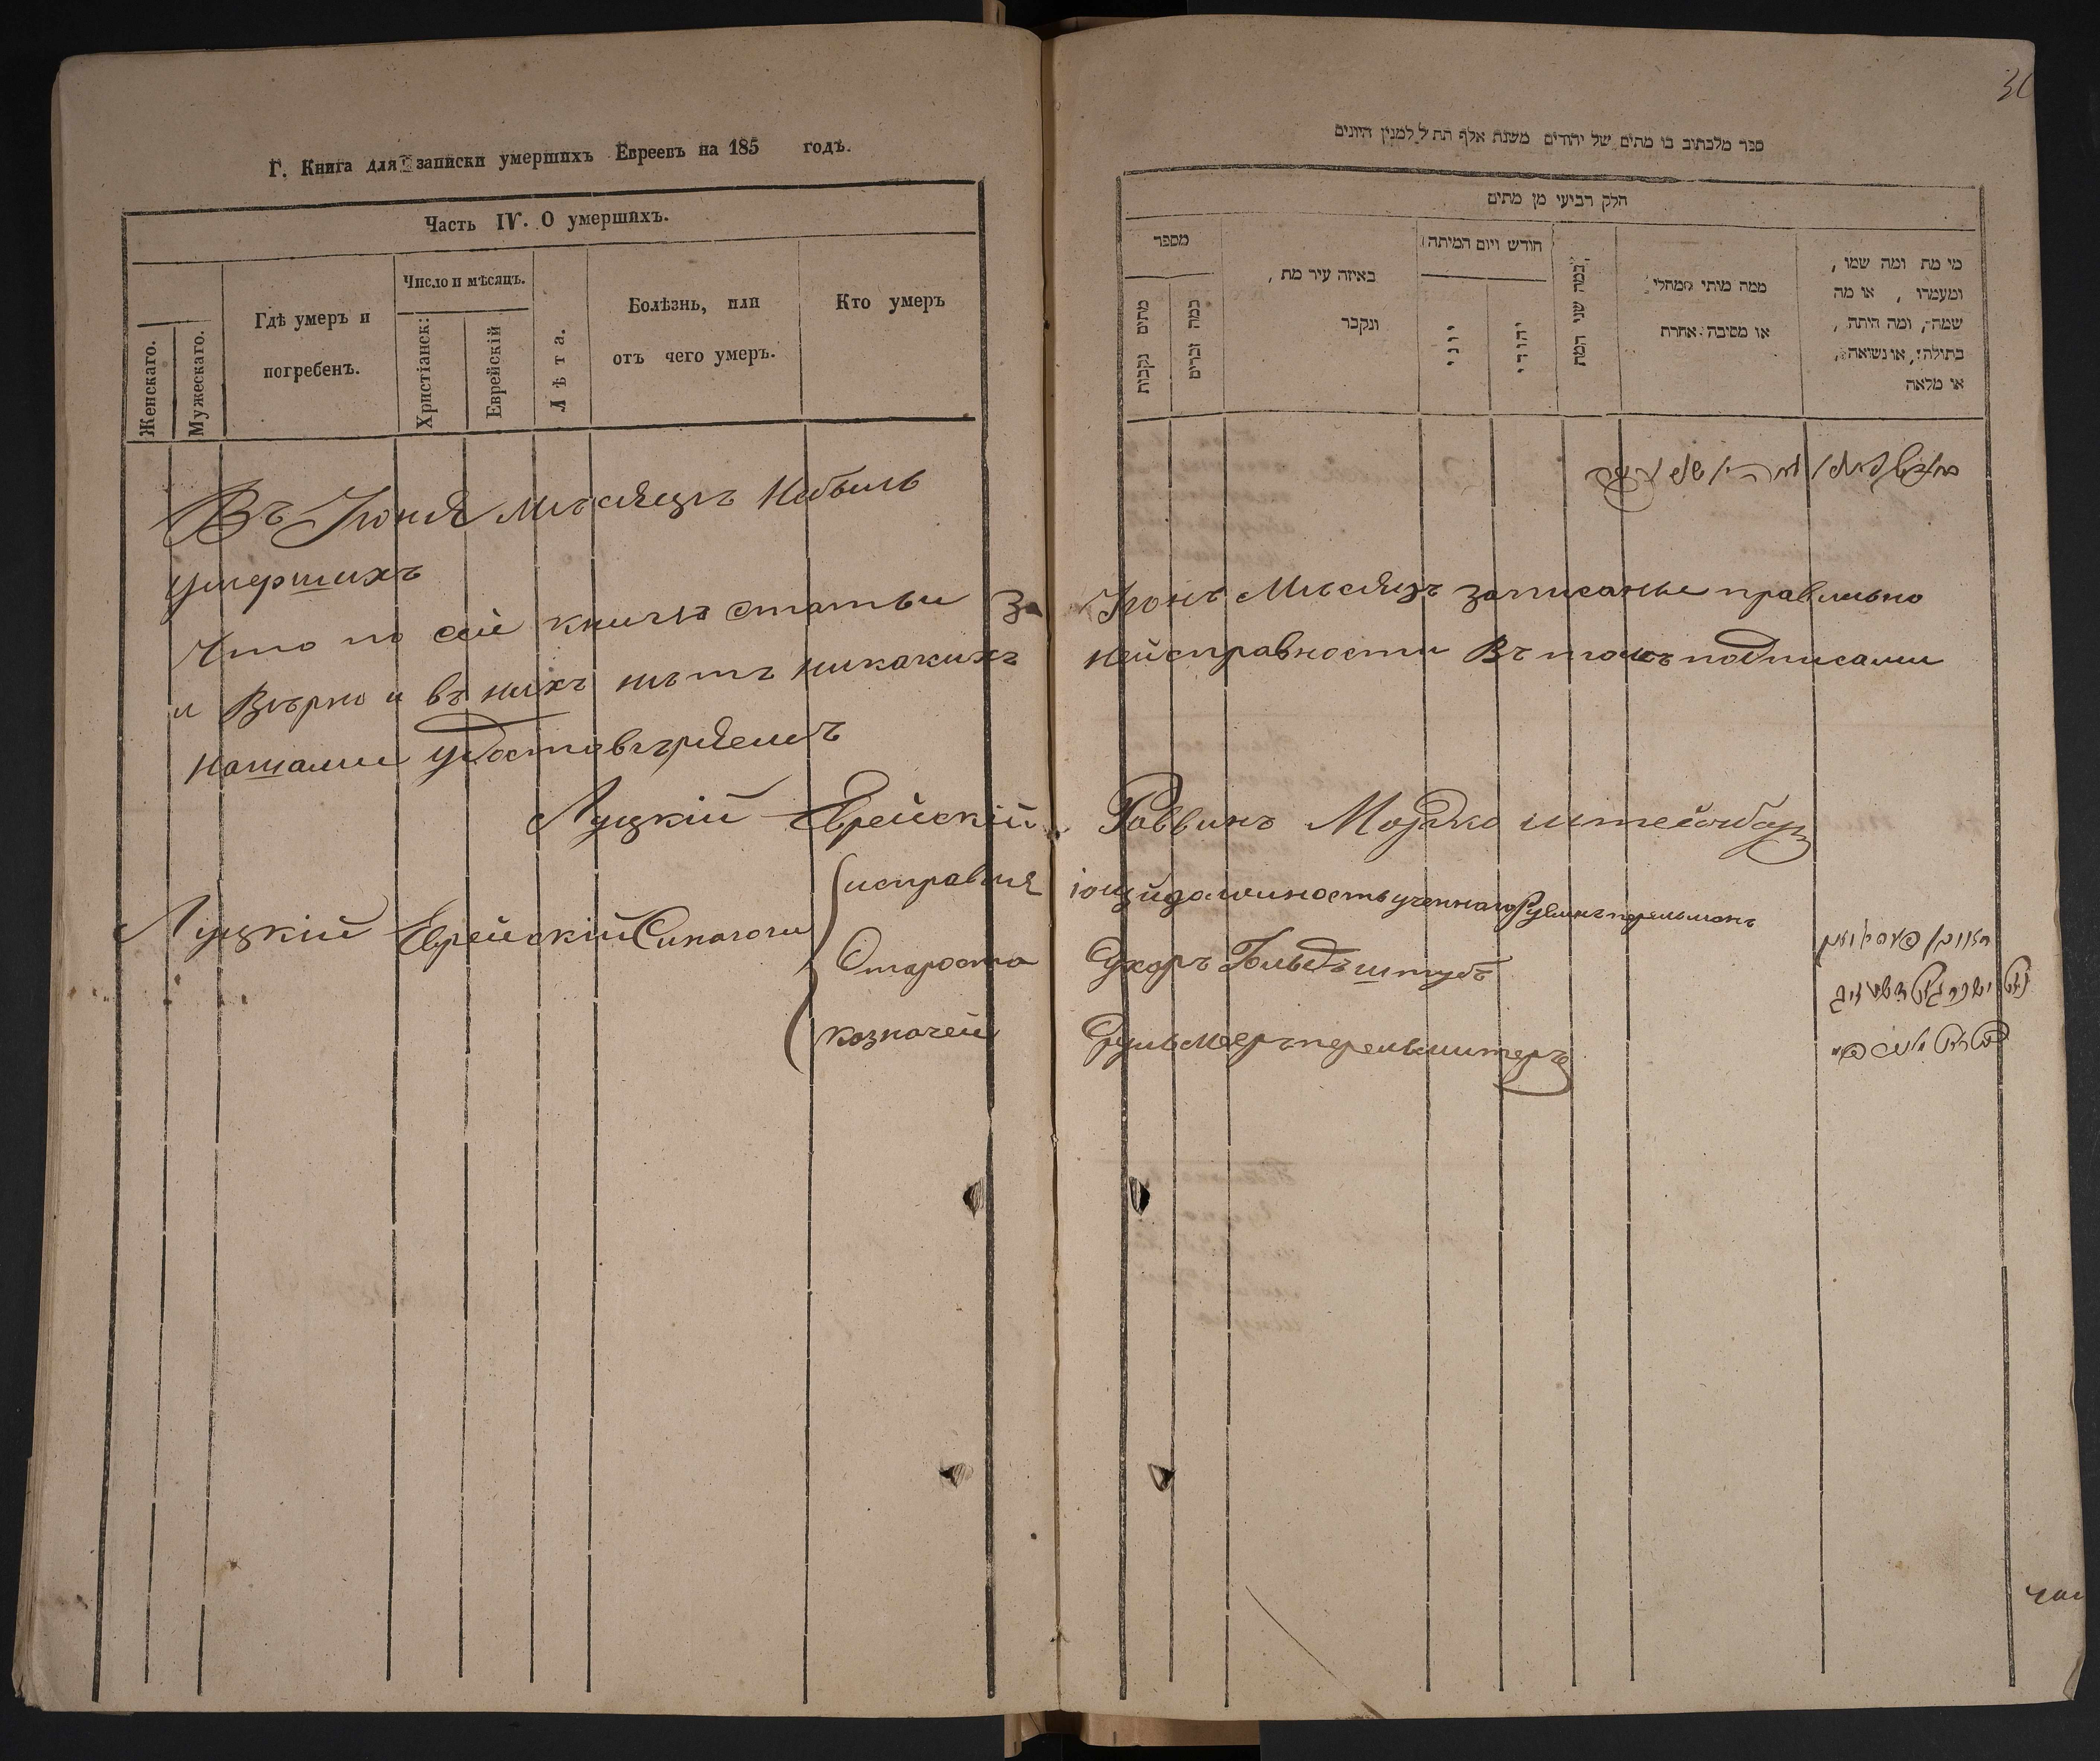 Г. Книга для записки умершихъ Евреевъ на 185 годъ.
Часть IV. О умершихъ.
Женскаго.
Мужескаго.
Гдѣ умеръ и
погребенъ.
Число и мѣсяцъ.
Христіанск:
Еврейскій
Лѣта.
Болѣзнь, или
отъ чего умеръ.
Кто умеръ
Въ Іюня мѣсяцѣ Небылъ
умершихъ
Что по сей книгѣ статьи За
и Вѣрно и въ нихъ нѣтъ никакихъ
нашами удостовѣряемъ
Луцкій Еврейскій
исправля
Луцкій Еврейскій Синагоги
Староста
казначей
ספר מלכתוב בו מתים של יהודים משנת אלף תת ל למנין היונים
חלק רביעי מן מתים
מספר
מתים נקבות
כמה זכרים
באיזה עיר מת,
ונקבר
חודש ויום המיתה
יוני
יהודי
כמה שני המת
ממה מותי ממחלי
או מסיבה אחרת
מי מת ומה שמו,
ומעמדו, או מה
שמה, ומה היתה,
בתולה, או נשואה,
או מלאה
Іюнь Мѣсяцъ записаные правильно
нейсправности Въ томъ подписами
Раввинъ Мордко
ющій должность ученнаго Рувинъ перельманъ
Сухоръ Гольдъштубъ
Сруль Меер перельмитеръ